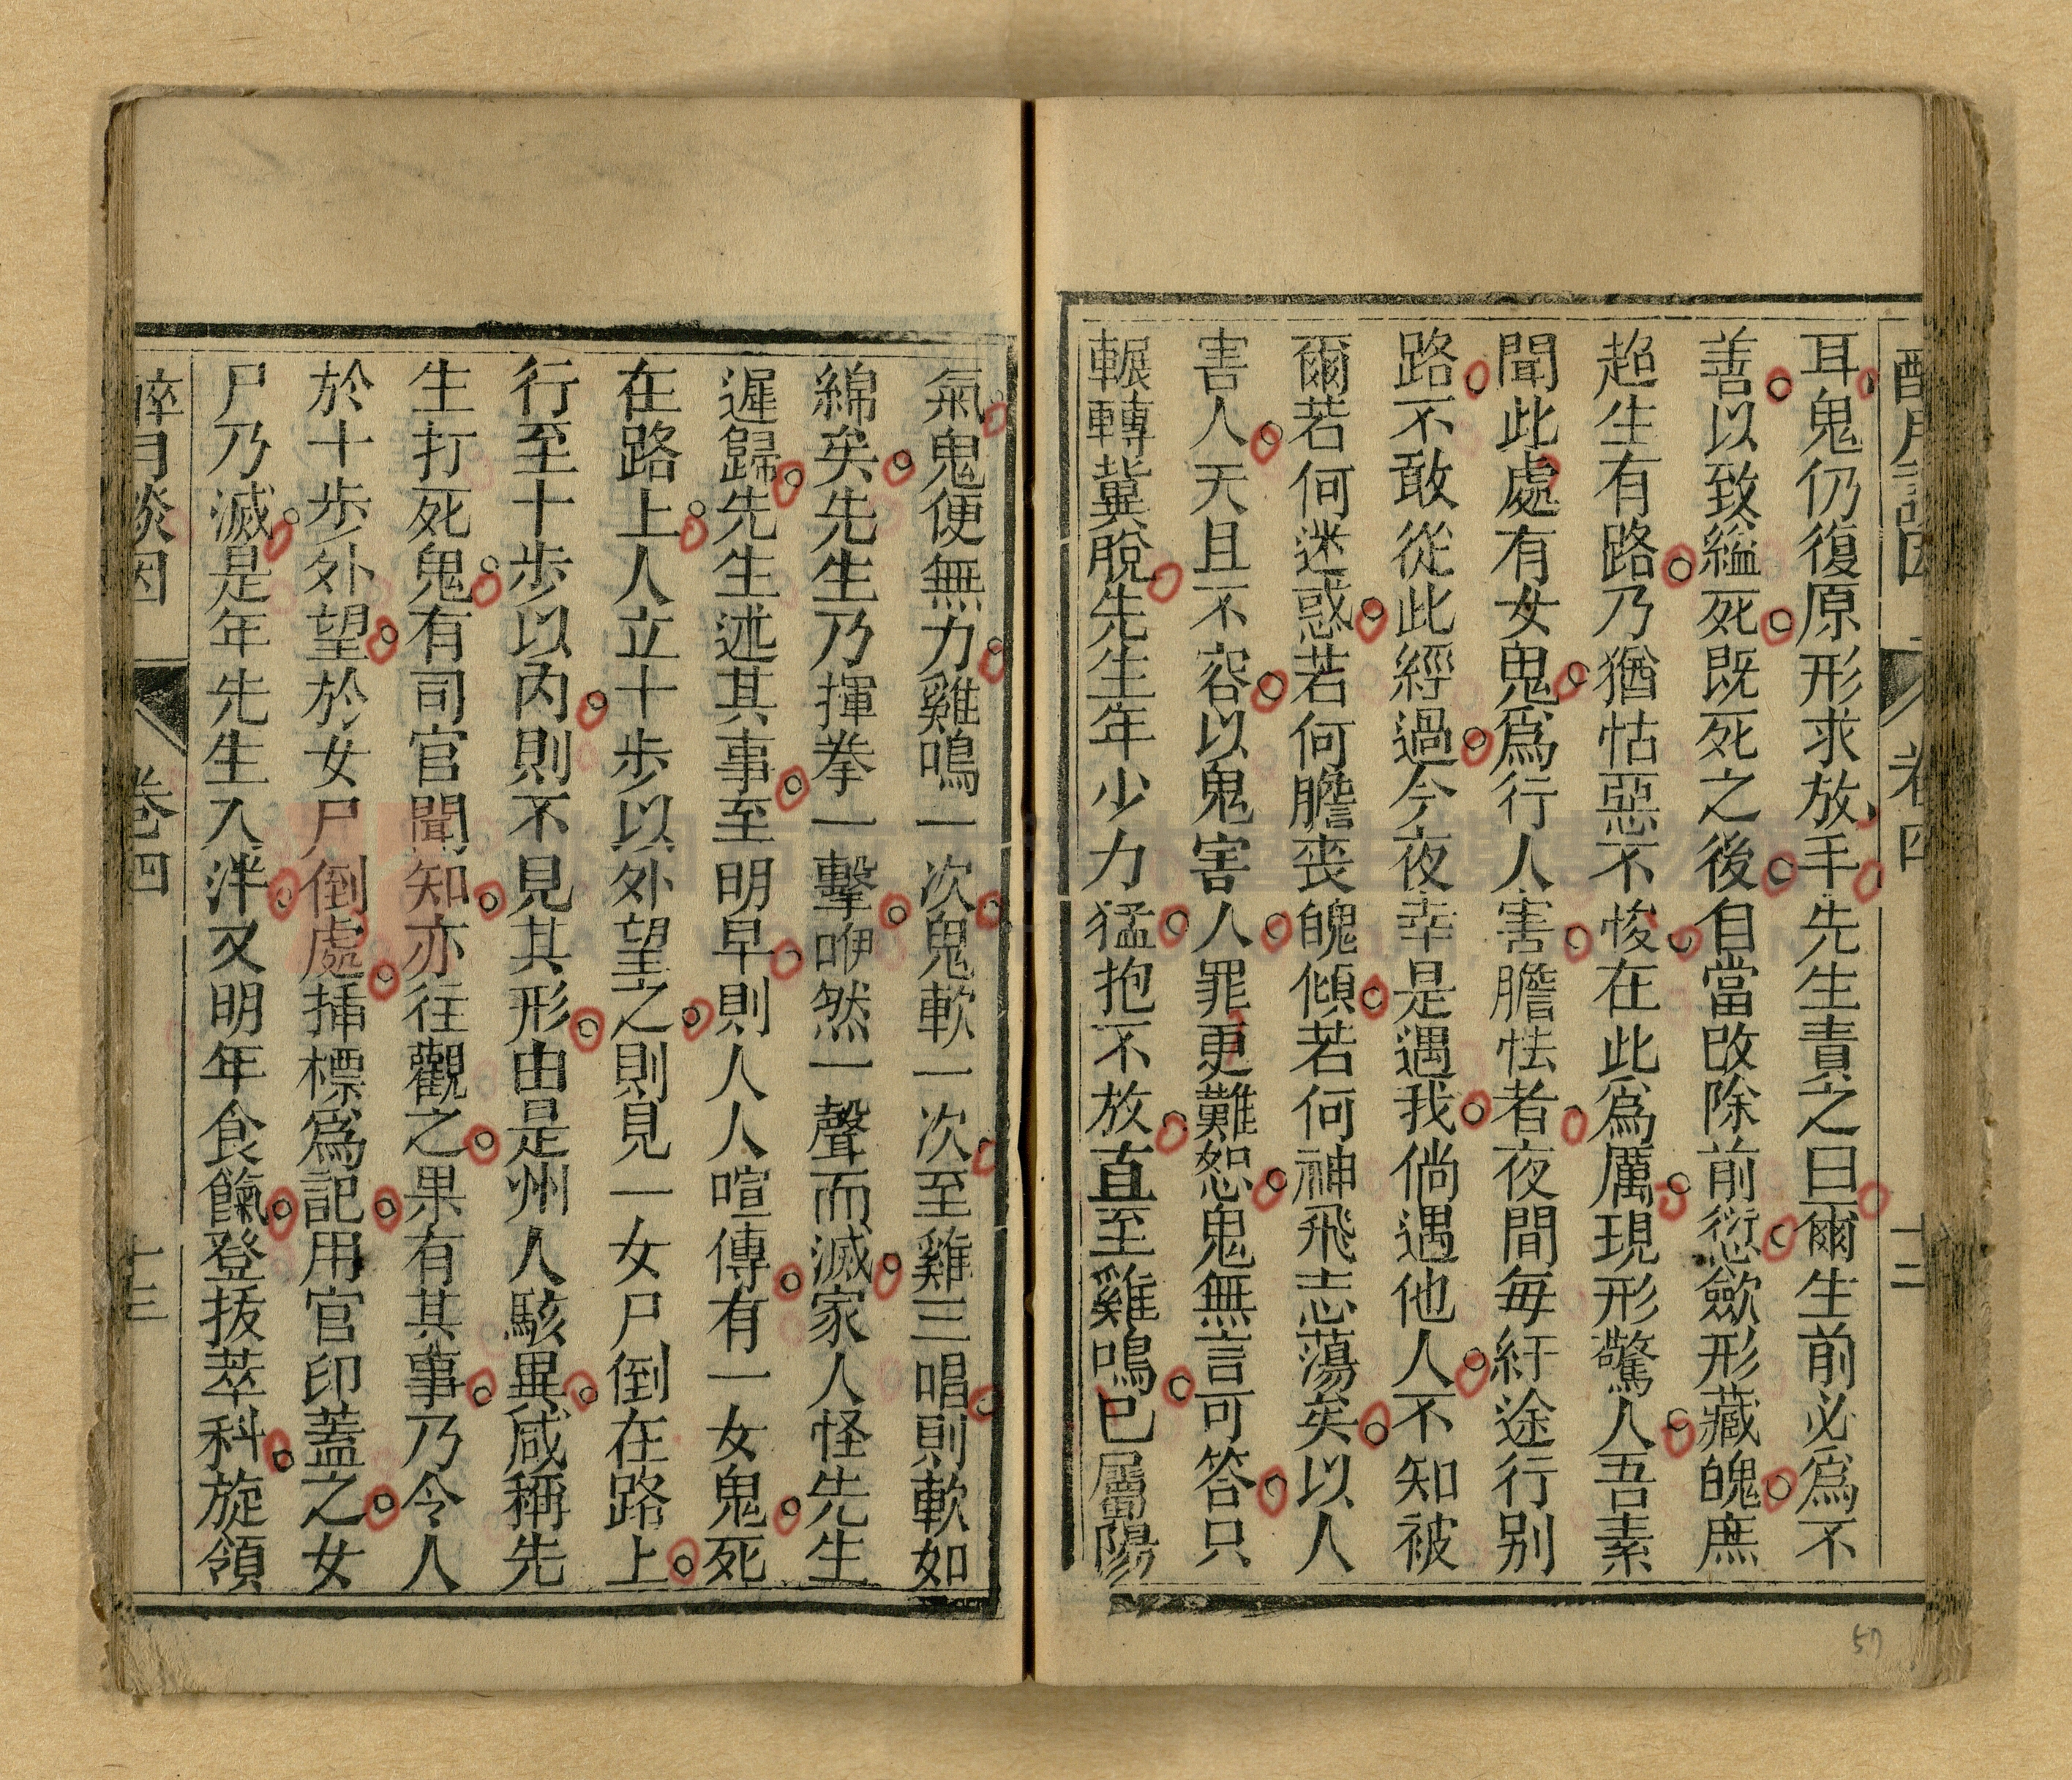 耳鬼仍復原形求放手先生責之曰爾生前必爲不
善以致縊死既死之後自當改除前愆歛形藏魄庶
超生有路乃猶怙惡不悛在此爲厲現形驚人吾素
聞此處有女鬼爲行人害膽怯者夜間每紆途行别
路不敢從此經過今夜幸是遇我倘遇他人不知被
爾若何迷惑若何膽喪魄傾若何神飛志蕩矣以人
害人天且不容以鬼害人罪更難恕鬼無言可答只
輾轉冀脫先生年少力猛抱不放直至雞鳴已屬陽
氣鬼便無力雞鳴一次鬼軟一次至雞三唱則軟如
綿矣先生乃揮拳一擊咿然一聲而滅家人怪先生
遲歸先生述其事至明早則人人喧傳有一女鬼死
在路上人立十步以外望之則見一女尸倒在路上
行至十步以內則不見其形由是州人駭異咸稱先
生打死鬼有司官聞知亦往觀之果有其事乃令人
於十步外望於女尸倒處插標爲記用官印蓋之女
尸乃滅是年先生入泮又明年食餼登拔萃科旋領
醉月談因
卷四
十三
卷四
十二